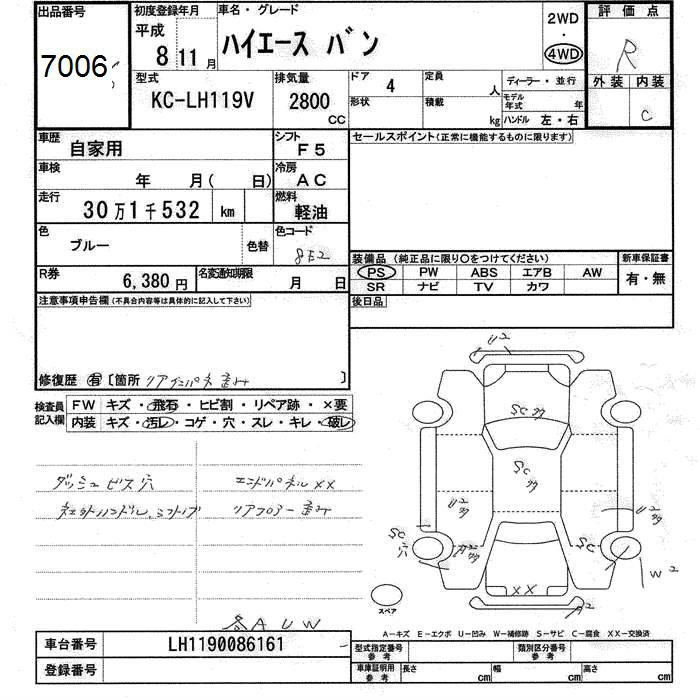 出品番号
7006
初度登録年月
平成
8 11月
車名・グレード
ハイエース バン
2WD
・
4WD
評価点
R
外装 内装
C
型式
KC-LH119V
排気量
2800
CC
ドア 4
形状
定員 人
積載 kg
ディーラー・並行
モデル年式 年
ハンドル 左・右
車歴
自家用
シフト
F5
車検
年 月( 日)
冷房
AC
走行
30万1千532 km
燃料
軽油
色
ブルー
色替
色コード
8E2
R券
6,380円
名変通知期限
月 日
セールスポイント(正常に機能するものに限ります)
装備品 (純正品に限り〇をつけてください)
新車保証書
PS PW ABS エアB AW
SR ナビ TV カワ
有・無
後日品
注意事項申告欄(不具合内容等は具体的に記入して下さい)
修復歴 有 〔箇所 リアインパネ歪み 〕
検査員記入欄
FW キズ・飛石・ヒビ割・リペア跡・×要
内装 キズ・汚レ・コゲ・穴・スレ・キレ・破レ
ダッシュビス穴
エンドパネルXX
リアフロアー歪み
各AUW
U2
SC
SC
U2
U2
SC
穴
SC
W2
XX
A2
スペア
A-キズ E-エクボ U-凹み W-補修跡 S-サビ C-腐食 XX-交換済
車台番号
LH1190086161
登録番号
型式指定番号
参考
類別区分番号
参考
車庫証明用
参考
長さ cm
幅 cm
高さ cm